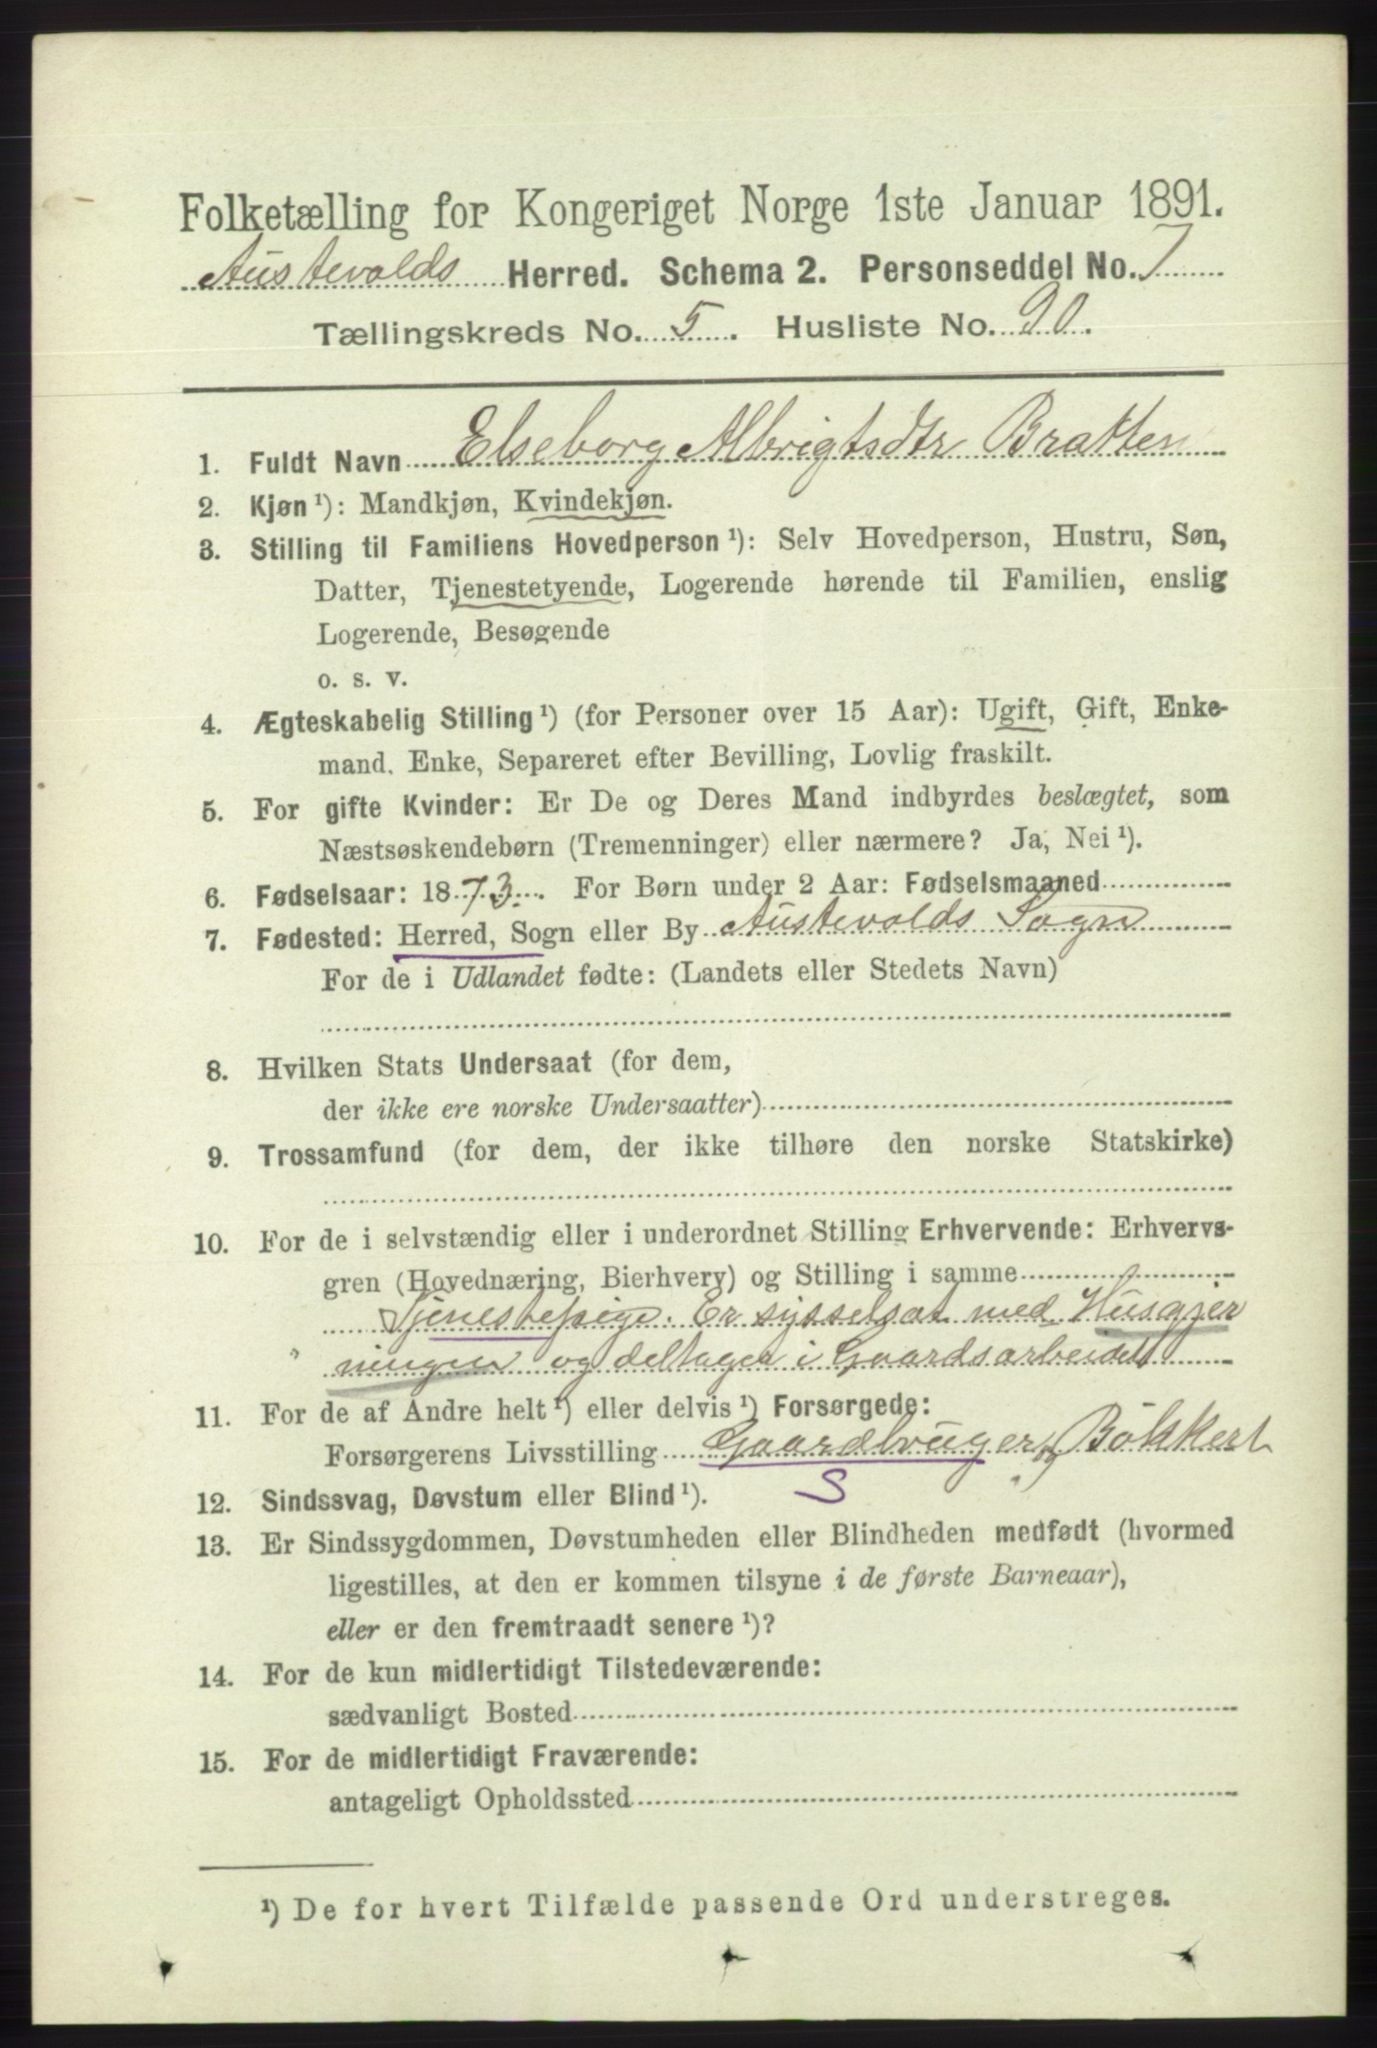 Folketælling for Kongeriget Norge 1ste Januar 1891.
Austevolds Herred. Schema 2. Personseddel No. 7
Tællingskreds No. 5. Husliste No. 90.
1. Fuldt Navn Elseborg Albrigtsdtr Bratten
2. Kjøn ¹): Mandkjøn, Kvindekjøn.
3. Stilling til Familiens Hovedperson ¹): Selv Hovedperson, Hustru, Søn,
Datter, Tjenestetyende, Logerende hørende til Familien, enslig
Logerende, Besøgende
o. s. v.
4. Ægteskabelig Stilling ¹) (for Personer over 15 Aar): Ugift, Gift, Enke-
mand, Enke, Separeret efter Bevilling, Lovlig fraskilt.
5. For gifte Kvinder: Er De og Deres Mand indbyrdes beslægtet, som
Næstsøskendebørn (Tremenninger) eller nærmere? Ja, Nei ¹).
6. Fødselsaar: 1873. For Børn under 2 Aar: Fødselsmaaned
7. Fødested: Herred, Sogn eller By Austevolds Sogn
For de i Udlandet fødte: (Landets eller Stedets Navn)
8. Hvilken Stats Undersaat (for dem,
der ikke ere norske Undersaatter)
9. Trossamfund (for dem, der ikke tilhøre den norske Statskirke)
10. For de i selvstændig eller i underordnet Stilling Erhvervende: Erhvervs-
gren (Hovednæring, Bierhverv) og Stilling i samme
Tjenestepige. Er sysselsat med Husgjer
" ningen og deltager i Gaardsarbeidet
11. For de af Andre helt ¹) eller delvis ¹) Forsørgede:
Forsørgerens Livsstilling Gaardbruger og
S
12. Sindssvag, Døvstum eller Blind ¹).
13. Er Sindssygdommen, Døvstumheden eller Blindheden medfødt (hvormed
ligestilles, at den er kommen tilsyne i de første Barneaar),
eller er den fremtraadt senere ¹)?
14. For de kun midlertidigt Tilstedeværende:
sædvanligt Bosted
15. For de midlertidigt Fraværende:
antageligt Opholdssted
¹) De for hvert Tilfælde passende Ord understreges.